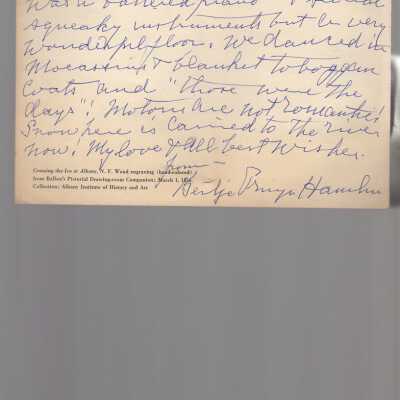 was a battered piano
squeaky instruments but a very
wonderful floor. We danced in
Mocassins & blanket toboggan
Coats and "those were the
days"! Motors are not romantic!
Snow here is carried to the river
now! My love & all best wishes.
from—
Crossing the Ice at Albany, N. Y. Wood engraving (handcolored)
from Ballou's Pictorial Drawing-room Companion; March 1,
Collection: Albany Institute of History and Art
Huybertie Pruyn Hamlin